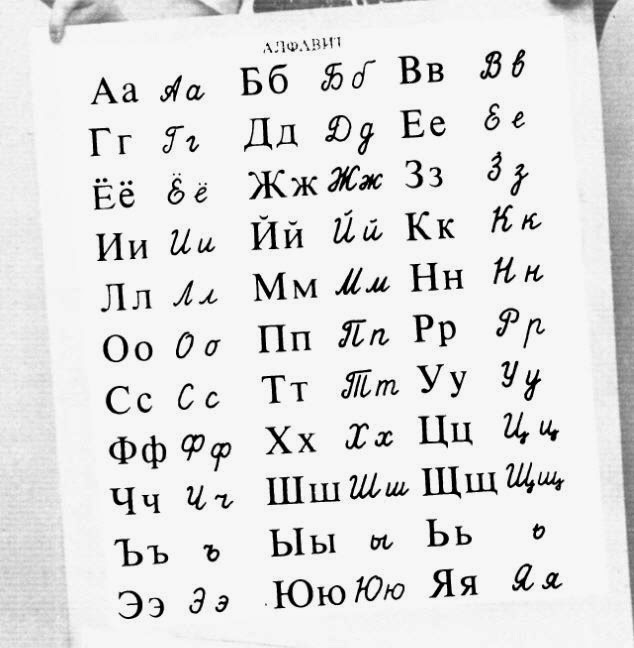 АЛФАВИТ
Аа Аа Бб Бб Вв Вв
Гг Гг Дд Дд Ее Ее
Ёё Ёё Жж Жж Зз Зз
Ии Ии Йй Йй Кк Кк
Лл Лл Мм Мм Нн Нн
Оо Оо Пп Пп Рр Рр
Сс Сс Тт Тт Уу Уу
Фф Фф Хх Хх Цц Цц
Чч Чч Шш Шш Щщ Щщ
Ъъ ъ Ыы ы Ьь ь
Ээ Ээ Юю Юю Яя Яя